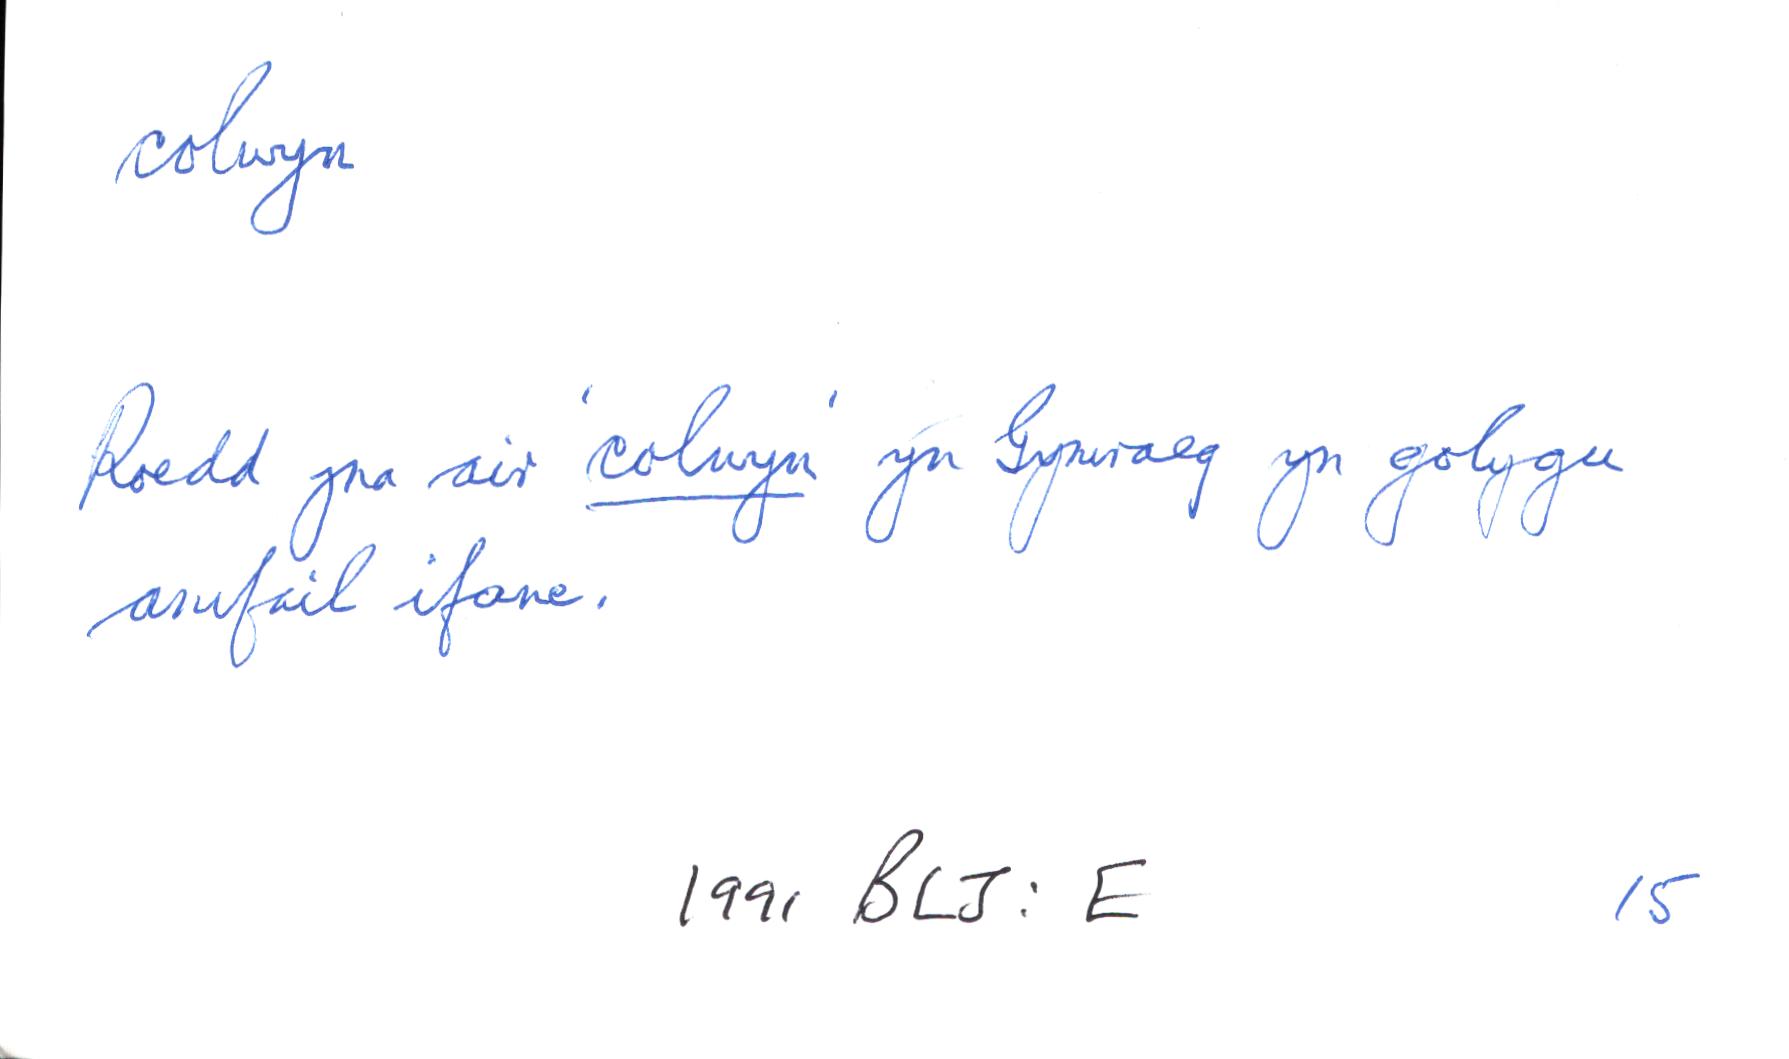 colwyn
Roedd yna air 'colwyn' yn Gymraeg yn golygu
anifail ifanc.
1991 BLJ: E 15